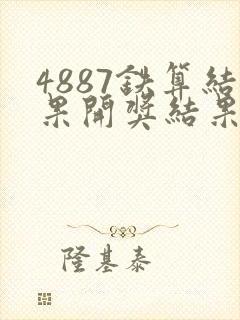 4887鉄算結
果開奬結果
隆基泰